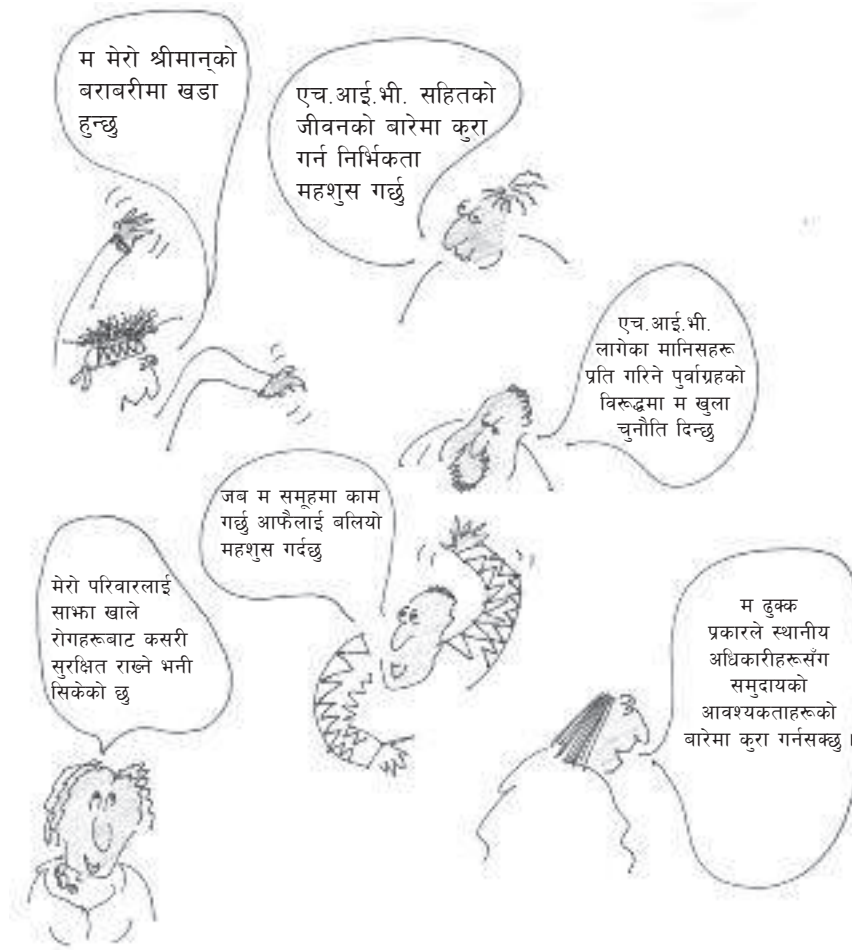 म मेरो श्रीमान्‌को
बराबरीमा खडा
हुन्छु
एच.आई.भी. सहितको
जीवनको बारेमा कुरा
गर्न निर्भिकता
महशुस गर्छु
एच.आई.भी.
लागेका मानिसहरू
प्रति गरिने पुर्वाग्रहको
विरूद्धमा म खुला
चुनौति दिन्छु
जब म समूहमा काम
गर्छु आफैलाई बलियो
महशुस गर्दछु
मेरो परिवारलाई
साझा खाले
रोगहरूबाट कसरी
सुरक्षित राख्ने भनी
सिकेको छु
म ढुक्क
प्रकारले स्थानीय
अधिकारीहरूसँग
समुदायको
आवश्यकताहरूको
बारेमा कुरा गर्नसक्छु ।